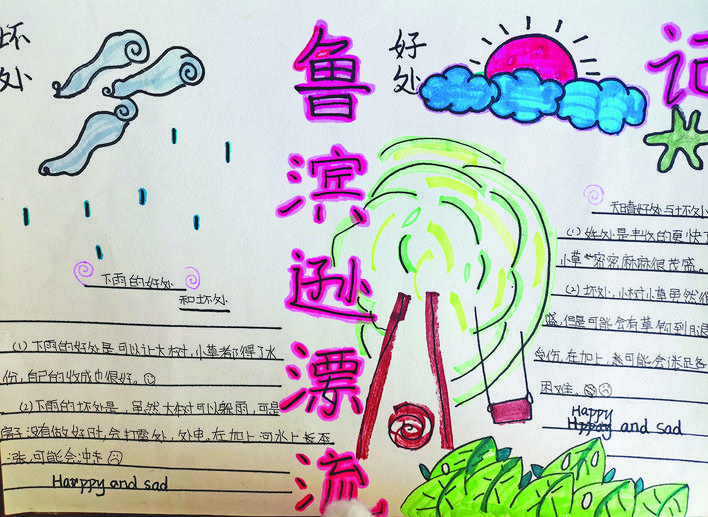 坏处
鲁滨逊漂流记
好处
下雨的好处
和坏处
(1)下雨的好处是可以让大树,小草都得了水
份,自己的收成也很好。
(2)下雨的坏处是,虽然大树可以躲雨,可是
没有做好时,会打雷
涨,可能会冲走
Harppy and sad
天晴好处与坏处
(1)好处是丰收的更快了
小草密密麻麻很茂盛。
(2)坏处,小树小草虽然很
盛,但是可能会有草钩到
身份,在加上,可能会迷足各
困难。
Happy
Hppay and sad